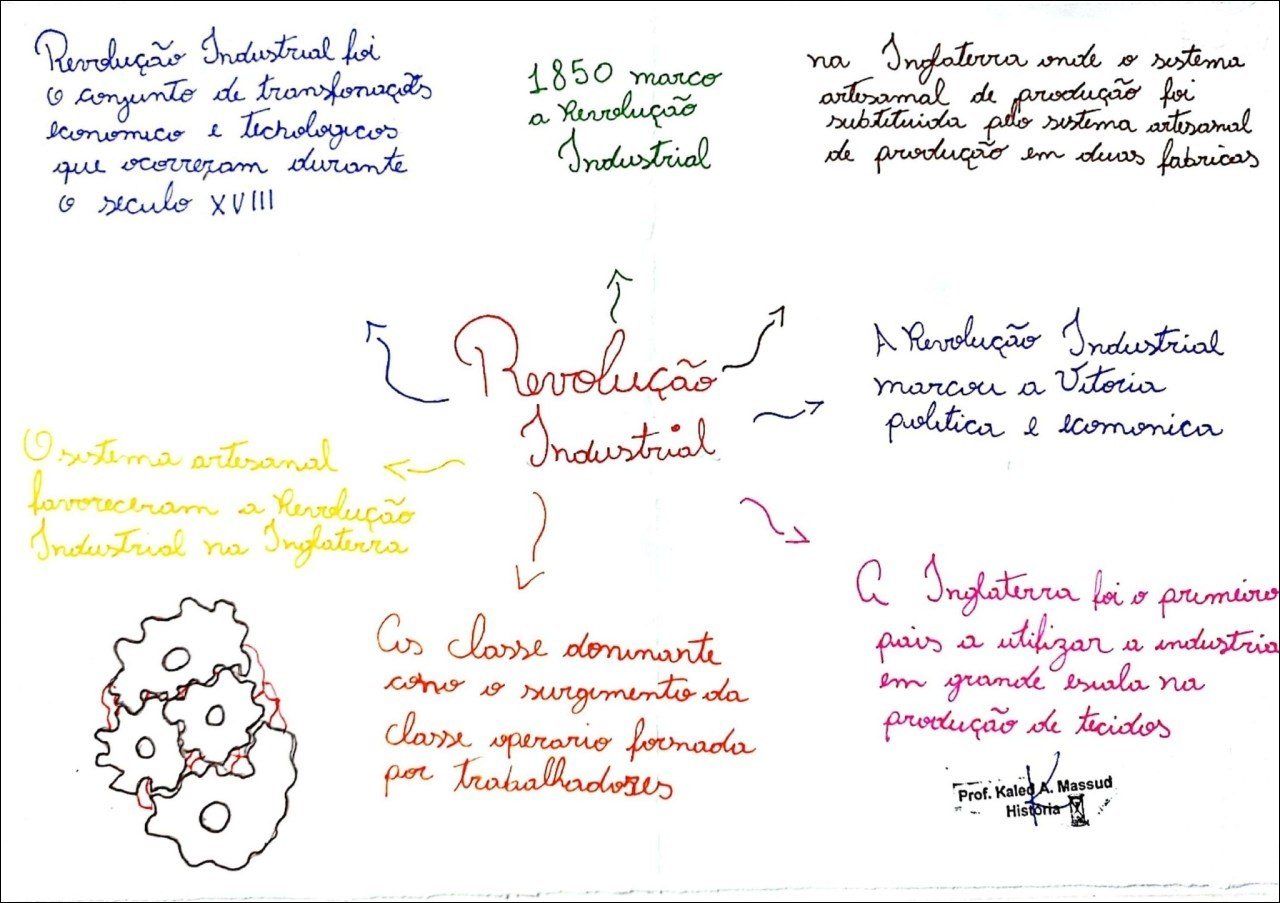 Revolução Industrial foi
o conjunto de transfonações
economico e techologicos
que ocorreram durante
o seculo XVIII
1850 marco
a Revolução
Industrial
na Inglaterra onde o sistema
artesamal de produção foi
substituida pelo sistema artesanal
de produção em duas fabricas
Revolução
Industrial
A Revolução Industrial
marcou a Vitoria
politica e ecomonica
O sistema artesanal
favoreceram a Revolução
Industrial na Inglaterra
As classe dominante
como o surgimento da
classe operario formada
por trabalhadores
A Inglaterra foi o primeiro
pais a utilizar a industria
em grande escala na
produção de tecidos
Prof. Kaled A. Massud
História